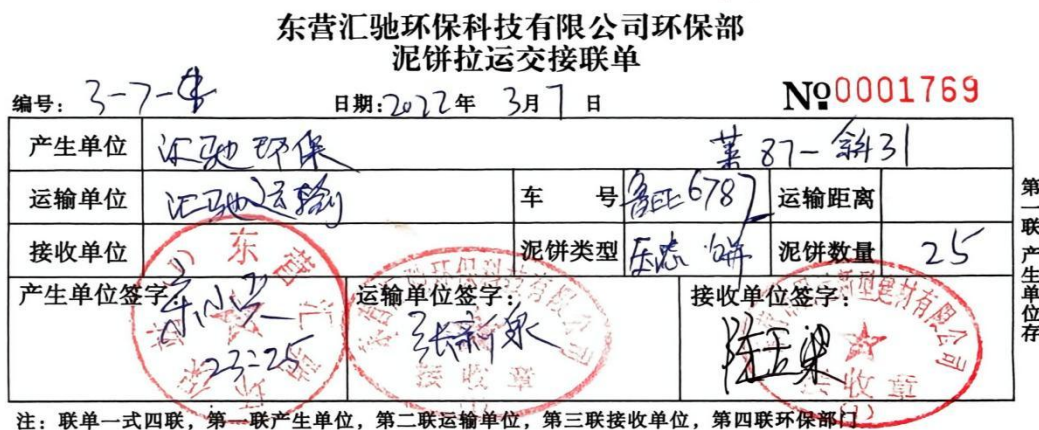 东营汇驰环保科技有限公司环保部
泥饼拉运交接联单
编号: 3-7- 日期:2022年 3月7日 №0001769
产生单位 汇驰环保 莱87-斜31
运输单位 汇驰运输 车号 鲁EE6787 运输距离
接收单位 泥饼类型 压滤饼 泥饼数量 25
产生单位签字: 运输单位签字: 张新泉 接收单位签字: 陈玉梁
23:25
东营汇
环保科技有限公司
接收章
新型建材有限公司
接收章
(1)
注:联单一式四联,第一联产生单位,第二联运输单位,第三联接收单位,第四联环保部门
第一联产生单位存